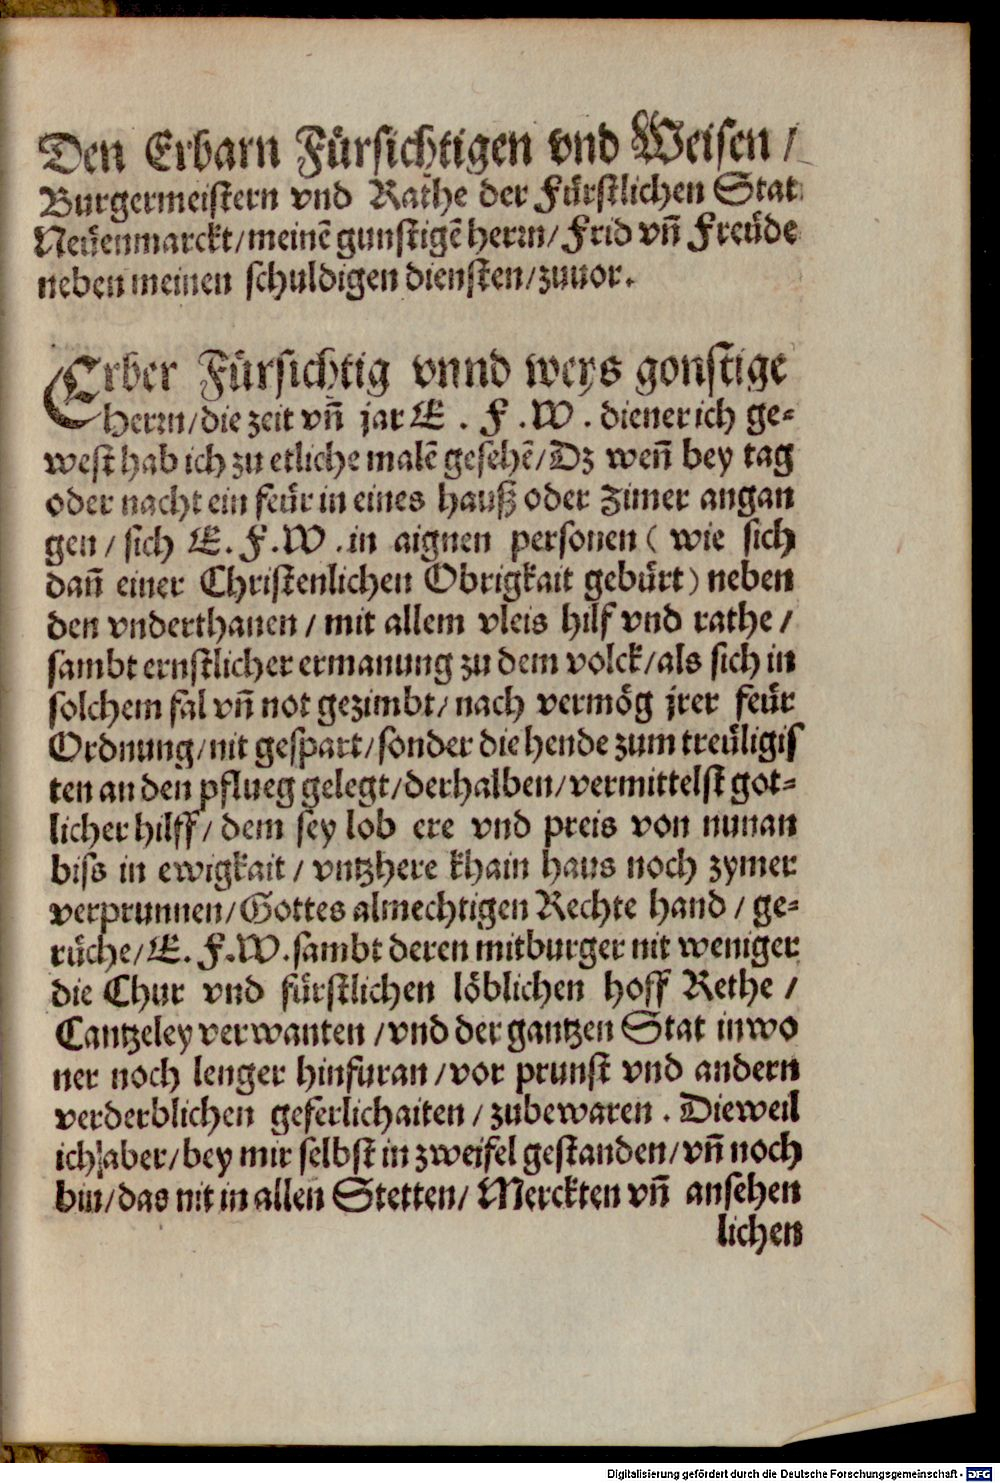 Den Erbarn Fürsichtigen vnd Weisen /
Burgermeistern vnd Rathe der Fürstlichen Stat
Neüenmarckt / meinē gunstigē herrn / Frid vn̄ Freüde
neben meinen schuldigen diensten / zuuor.
Erber Fürsichtig vnnd weys gonstige
Herrn / die zeit vn̄ jar E . F . W . diener ich ge-
west hab ich zu etliche malē gesehē / Dz wen̄ bey tag
oder nacht ein feür in eines hauß oder Zimer angan
gen / sich E. F. W . in aignen personen ( wie sich
dan̄ einer Christenlichen Obrigkait gebürt ) neben
den vnderthanen / mit allem vleis hilf vnd rathe /
sambt ernstlicher ermanung zu dem volck / als sich in
solchem fal vn̄ not gezimbt / nach vermög jrer feür
Ordnung / nit gespart / sonder die hende zum treüligis
ten an den pflueg gelegt / derhalben / vermittelst got-
licher hilff / dem sey lob ere vnd preis von nunan
biss in ewigkait / vntzhere khain haus noch zymer
verprunnen / Gottes almechtigen Rechte hand / ge-
rüche / E. F. W. sambt deren mitburger nit weniger
die Chur vnd fürstlichen löblichen hoff Rethe /
Cantzeley verwanten / vnd der gantzen Stat inwo
ner noch lenger hinfuran / vor prunst vnd andern
verderblichen geferlichaiten / zubewaren . Dieweil
ich aber / bey mir selbst in zweifel gestanden / vn̄ noch
bin / das nit in allen Stetten / Merckten vn̄ ansehen
lichen
Digitalisierung gefördert durch die Deutsche Forschungsgemeinschaft - DFG